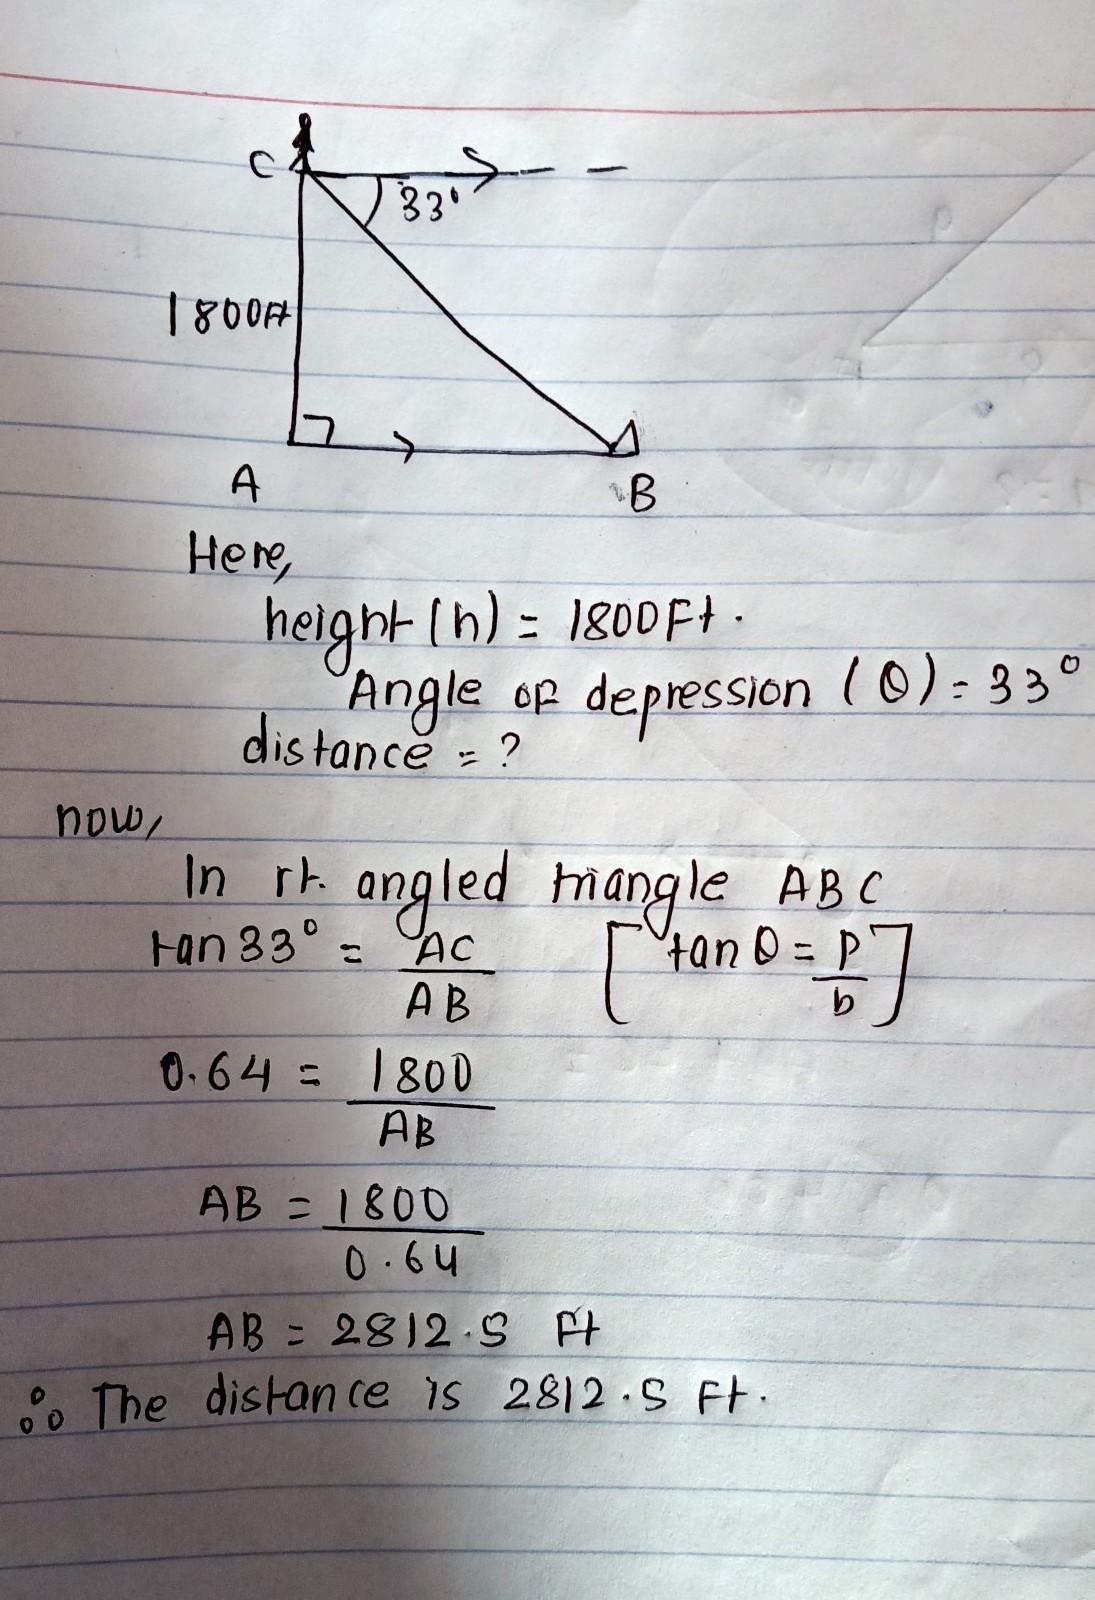 C
33°
1800ft
A
B
Here,
height (h) = 1800Ft.
Angle of depression (θ) = 33°
distance = ?
now,
In rt. angled triangle ABC
tan 33° = AC/AB [tan θ = p/b]
0.64 = 1800/AB
AB = 1800/0.64
AB = 2812.5 Ft
∴ The distance is 2812.5 Ft.